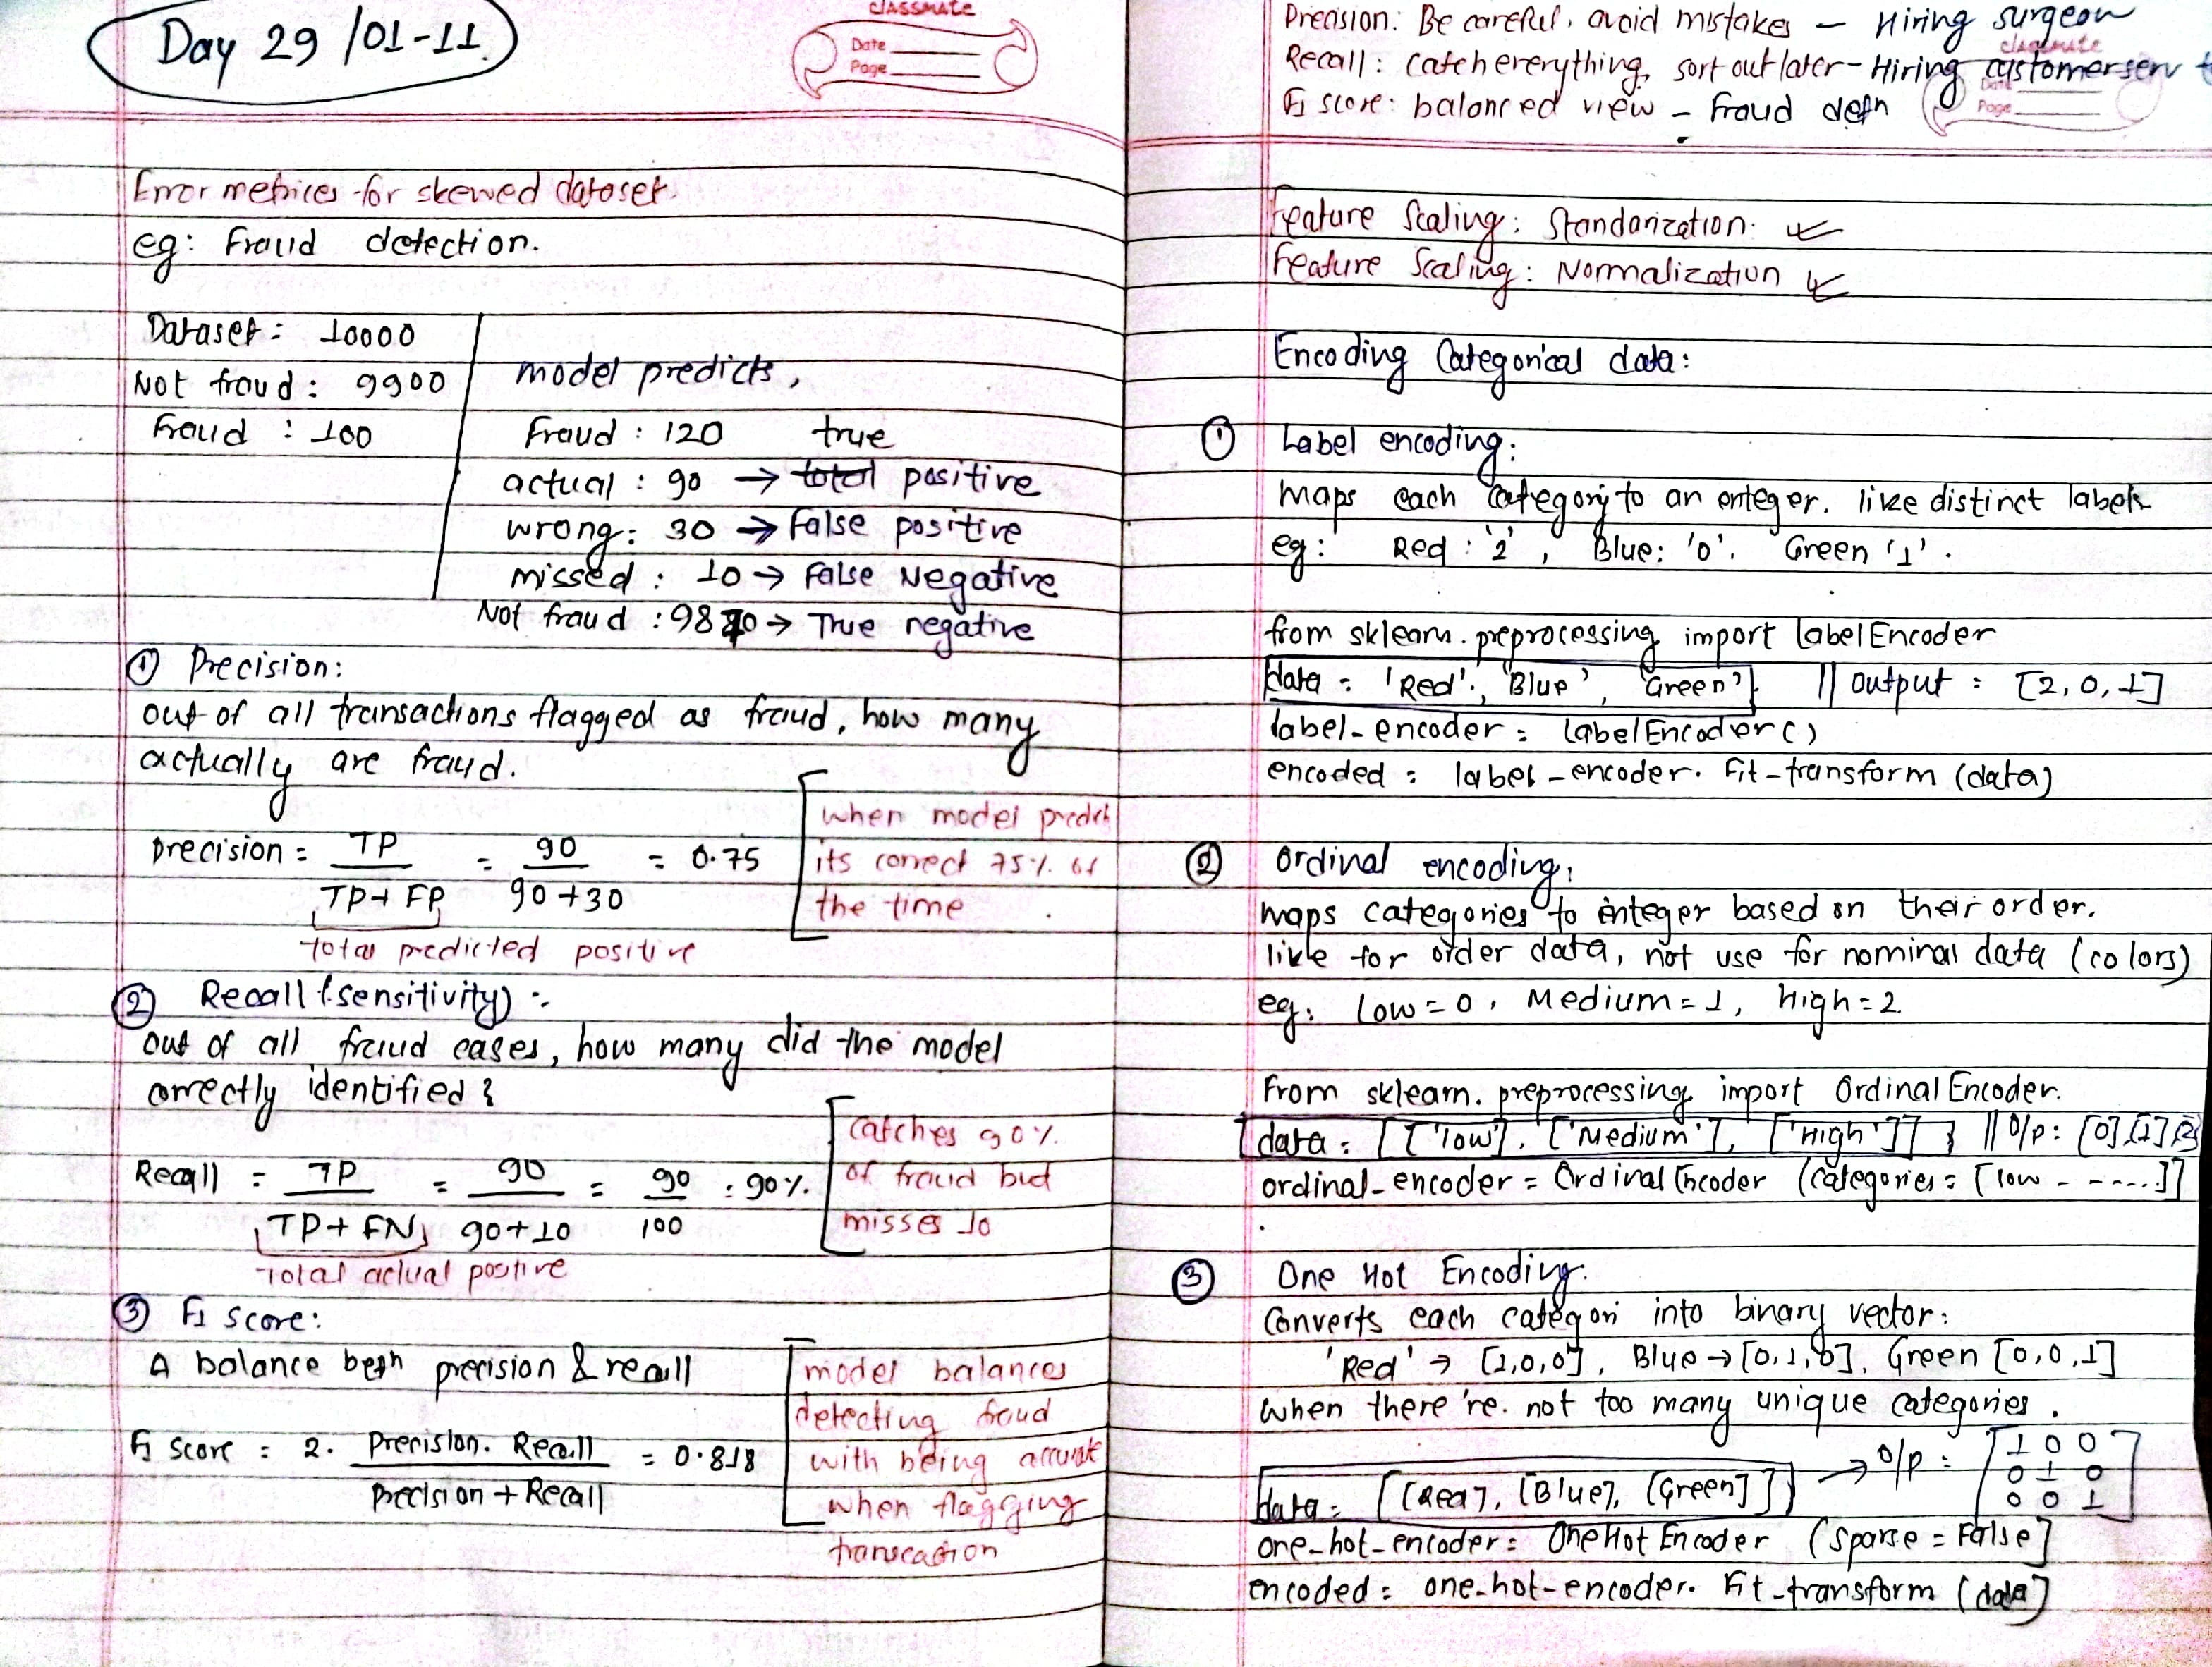 Day 29 /01-11.
classmate
Date
Page
Error metrices for skewed dataset.
eg: Fraud detection.
Dataset: 10000
Not fraud: 9900
Fraud : 100
model predicts,
Fraud : 120 true
actual : 90 → total positive
wrong: 30 → False positive
missed : 10 → False Negative
Not fraud : 9870 → True negative
① Precision:
out of all transactions flagged as fraud, how many
actually are fraud.
Precision = TP / TP + FP = 90 / 90+30 = 0.75
total predicted positive
when model predicts
its correct 75% of
the time
② Recall (sensitivity) :-
out of all fraud cases, how many did the model
correctly identified?
Recall = TP / TP + FN = 90 / 90+10 = 90 / 100 : 90%.
Total actual positive
catches 90%.
of fraud but
misses 10
③ F1 score:
A balance betn precision & recall
F1 score = 2. Precision. Recall / Precision + Recall = 0.818
model balances
detecting fraud
with being accurate
when flagging
transcation
Precision: Be careful, avoid mistakes - Hiring surgeon
Recall: catch everything, sort out later - Hiring customer serv
F1 score: balanced view - Fraud detn
classmate
Date
Page
Feature Scaling: Standarization.
Feature Scaling: Normalization
Encoding Categorical data:
① Label encoding:
maps each category to an enteger. like distinct labels
eg: Red : '2', Blue: '0', Green '1'.
from sklearn.preprocessing import LabelEncoder
data = 'Red', 'Blue', 'Green'] || output : [2, 0, 1]
label-encoder = LabelEncoder()
encoded = label-encoder. Fit-transform (data)
② Ordinal encoding:
maps categories to integer based on their order.
like for order data, not use for nominal data (colors)
eg: Low = 0, Medium = 1, High = 2.
From sklearn.preprocessing import OrdinalEncoder.
data = [['low'], ['Medium'], ['High']] || O/p: [0],[1],[2]
ordinal_encoder = OrdinalEncoder (categories = [low - - ....]]
③ One Hot Encoding:
Converts each categori into binary vector:
'Red' → [1,0,0], Blue → [0,1,0], Green [0,0,1]
when there're. not too many unique categories.
data = [[Red], [Blue], [Green]] → O/p = [1 0 0
0 1 0
0 0 1]
one-hot-encoder = OneHotEncoder (Sparse = False]
encoded = one-hot-encoder. Fit-transform (data]